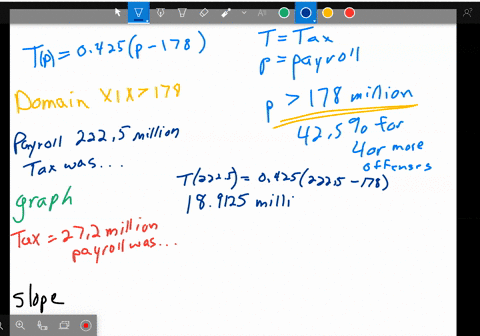 T(p) = 0.425(p - 178)
Domain X | X > 178
Payroll 222.5 million
Tax was...
graph
Tax = 27.2 million
payroll was...
slope
T = Tax
p = payroll
p > 178 million
42.5% for
4 or more
offenses
T(222.5) = 0.425(222.5 - 178)
18.9125 milli